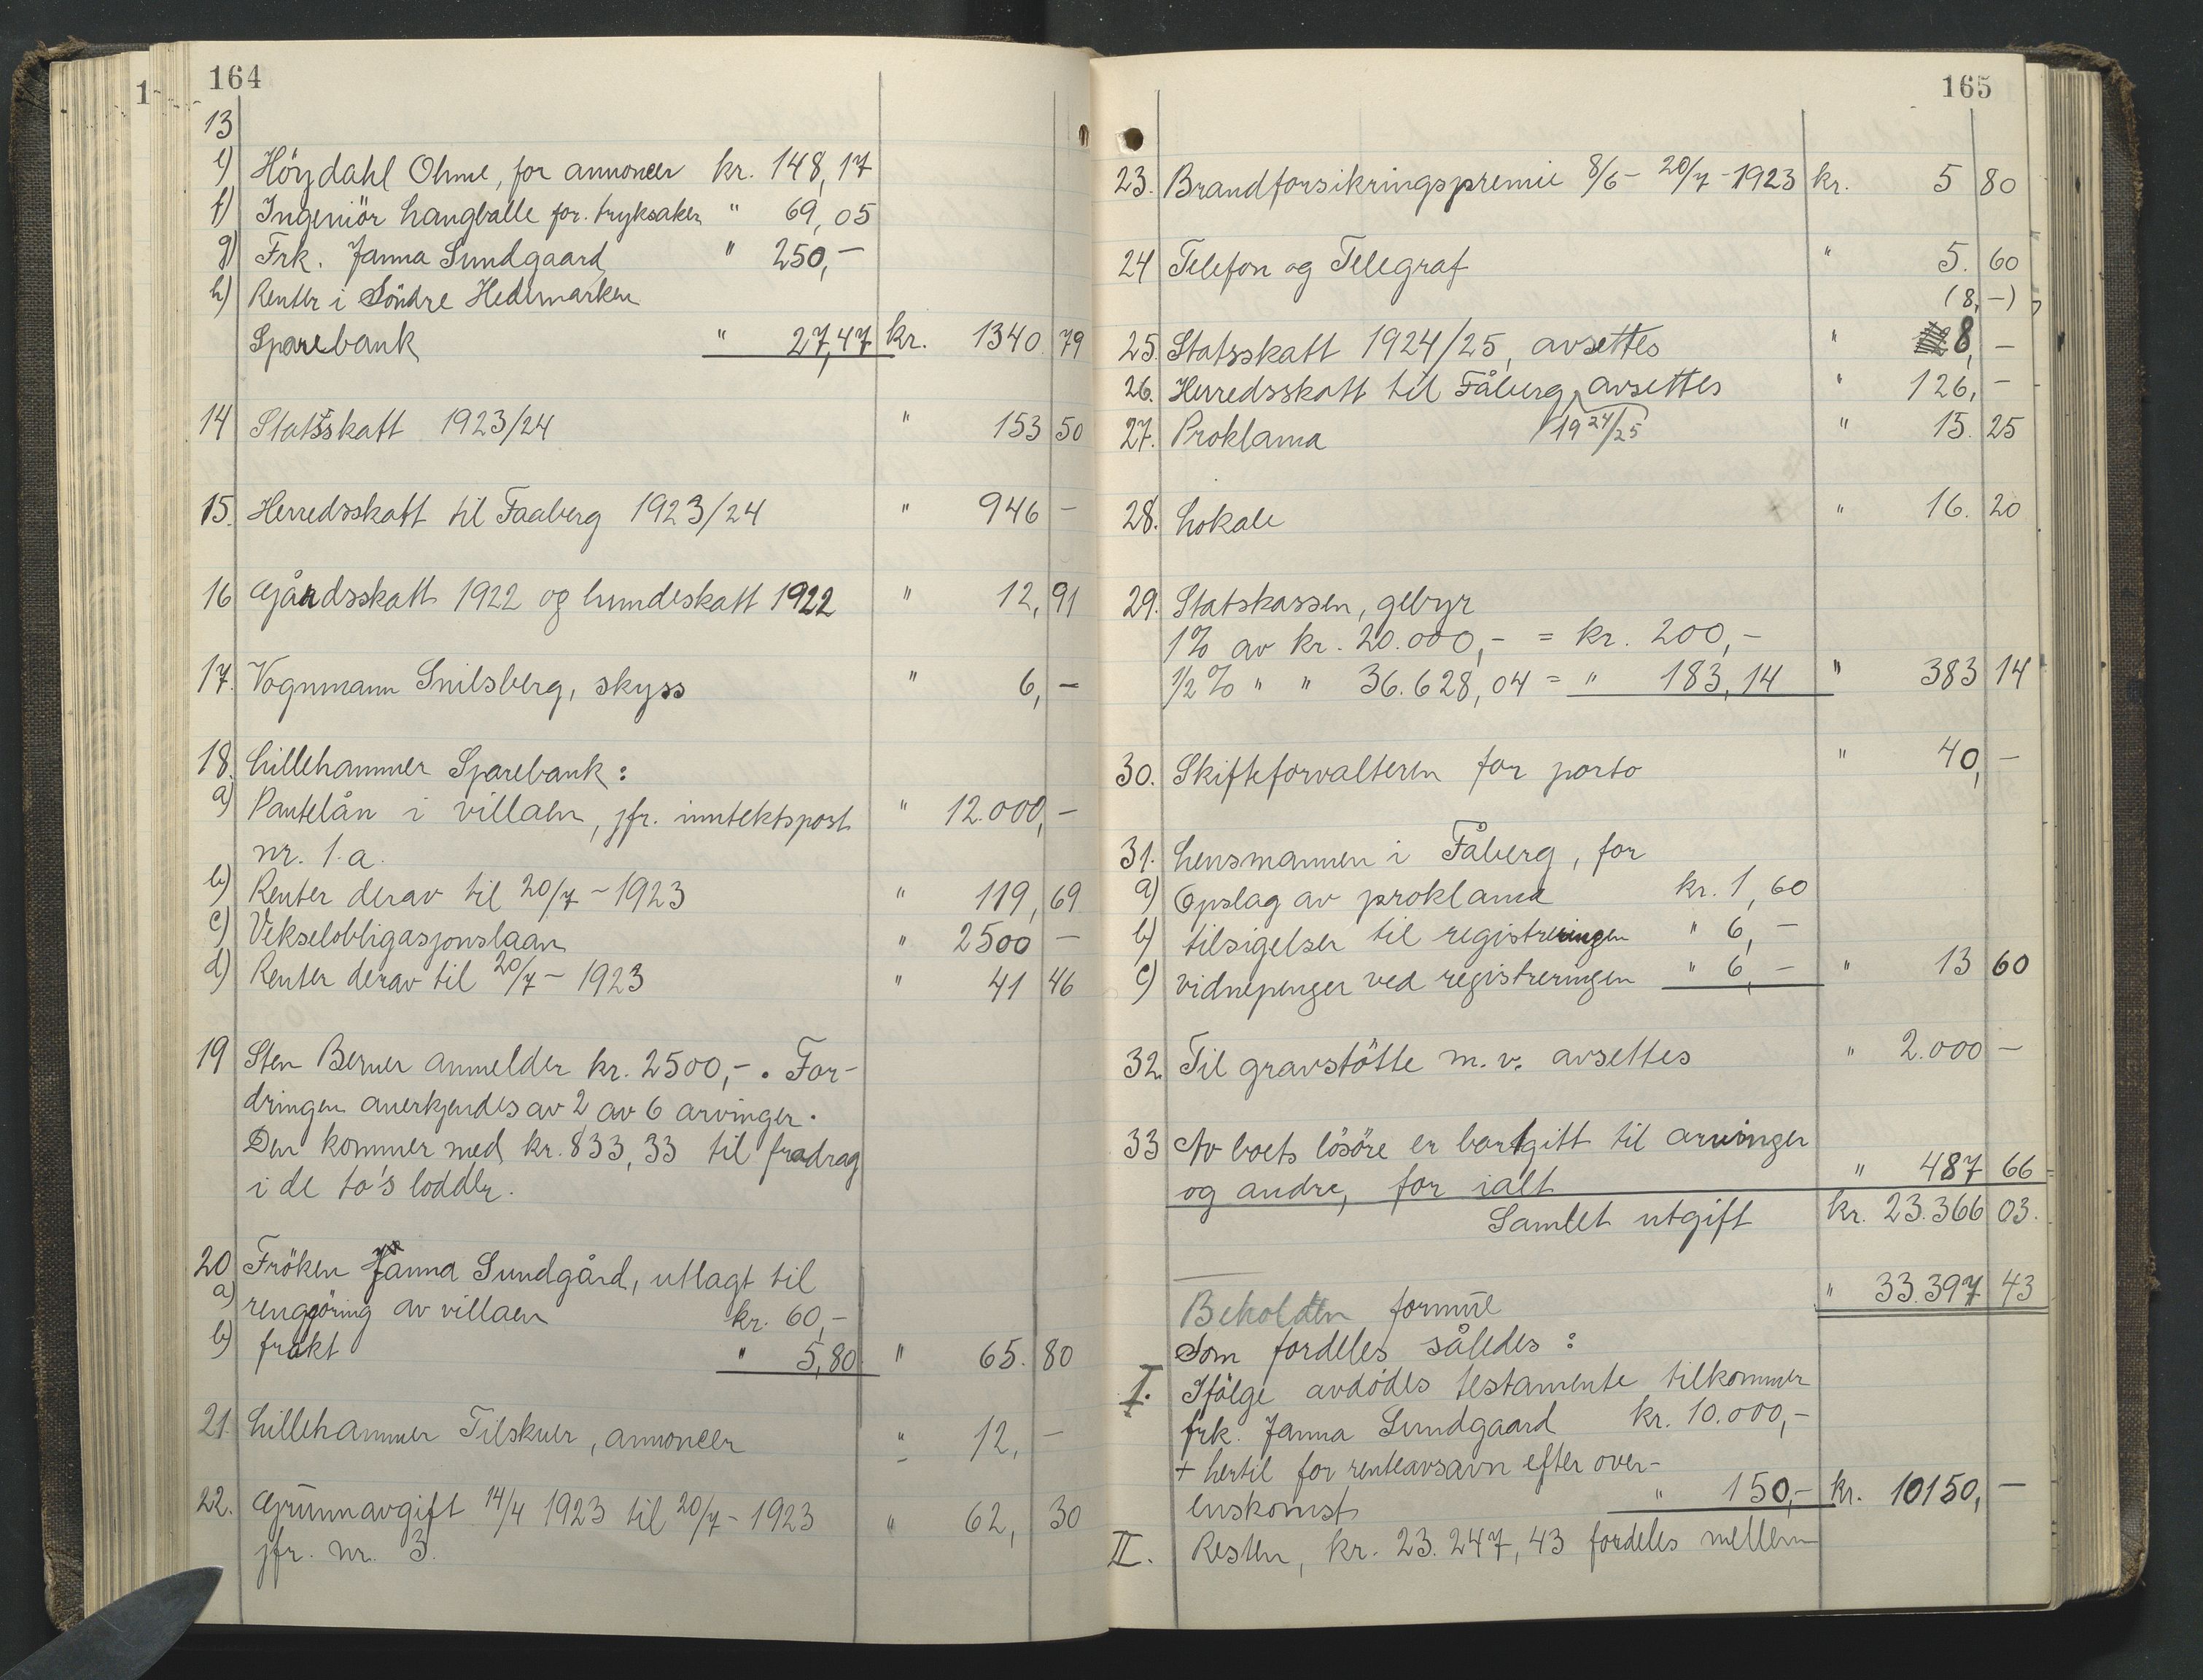 164
13
e) Höydahl Ohme, for annoncer kr. 148,17
f) Ingeniör Langballe for tryksaker " 69,05
g) Frk. Janna Sundgaard " 250,-
h) Renter i Söndre Hedemarken
Sparebank " 27,47 kr. 1340. 79
14 Statsskatt 1923/24 " 153 50
15. Herredsskatt til Faaberg 1923/24 " 946 -
16 Gårdsskatt 1922 og hundeskatt 1922 " 12, 91
17. Vognmann Snilsberg, skyss " 6, -
18. Lillehammer Sparebank :
a) Pantelån i villaen, jfr. inntektspost " 12.000, -
nr. 1.a.
b) Renter derav til 20/7 - 1923 " 119, 69
c) Vekselobligasjonslaan " 2500 -
d) Renter derav til 20/7 - 1923 " 41 46
19 Sten Berner anmelder kr. 2500,-. For-
dringen anerkjendes av 2 av 6 arvinger.
Den kommer med kr. 833,33 til fradrag
i de to's lodder.
20 Fröken Janna Sundgård, utlagt til
a) rengjöring av villaen kr. 60,-
b) frakt " 5,80 " 65. 80
21. Lillehammer Tilskuer, annoncer " 12, -
22. Grunnavgift 14/4 1923 til 20/7 - 1923 " 62, 30
jfr. nr. 3.
165
23. Brandforsikringspremie 8/6 - 20/7 - 1923 kr. 5 80
24 Telefon og Telegraf " 5. 60
(8, -)
25. Statsskatt 1924/25, avsettes " 8, -
26. Herredsskatt til Fåberg, avsettes " 126, -
27. Proklama 1924/25 " 15. 25
28. Lokale " 16. 20
29. Statskassen, gebyr
1% av kr. 20.000,- = kr. 200,-
1/2 % " " 36.628,04 = " 183,14 " 383 14
30. Skifteforvalteren for porto " 40, -
31. Lensmannen i Fåberg, for
a) Opslag av proklama kr. 1,60
b) tilsigelser til registreringen " 6, -
c) vidnepenger ved registreringen " 6, - " 13 60
32. Til gravstötte m. v. avsettes " 2.000 -
33 Av boets lösöre er bortgitt til arvinger
og andre, for ialt " 487 66
Samlet utgift kr. 23.366 03.
Beholden formue " 33.397 43
Som fordeles således :
I. Ifölge avdödes testamente tilkommer
frk. Janna Sundgaard kr. 10.000,-
+ hertil for renteavsavn efter over-
enskomst " 150,- kr. 10150, -
II. Resten, kr. 23.247,43 fordeles mellem